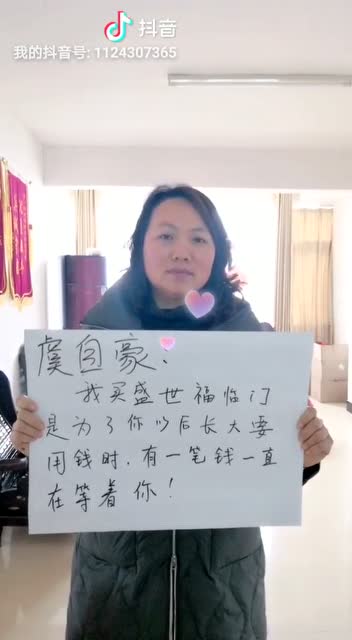 抖音
我的抖音号: 1124307365
虞自豪、
我买盛世福临门
是为了你以后长大要
用钱时，有一笔钱一直
在等着你！